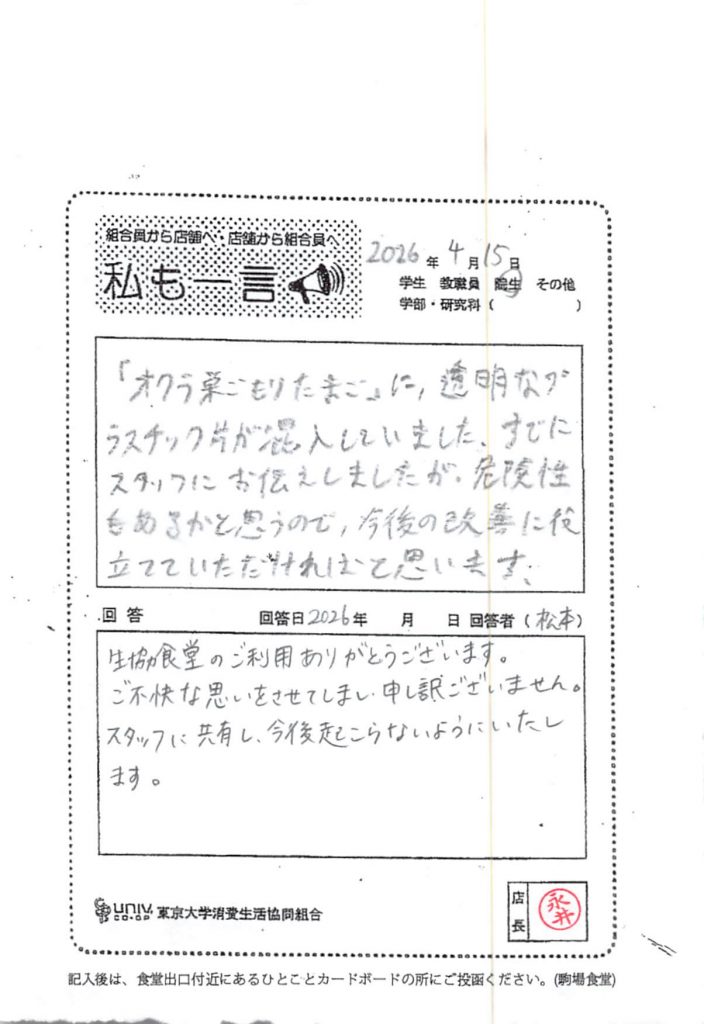 組合員から店舗へ・店舗から組合員へ
私も一言
2026年 4月15日
学生 教職員 院生 その他
学部・研究科（ ）
「オクラ巣ごもりたまご」に，透明なプ
ラスチック片が混入していました、すでに
スタッフにお伝えしましたが、危険性
もあるかと思うので，今後の改善に役
立てていただければと思います、
回答 回答日2026年 月 日 回答者（松本）
生協食堂のご利用ありがとうございます。
ご不快な思いをさせてしまい申し訳ございません。
スタッフに共有し、今後起こらないようにいたし
ます。
UNIV CO-OP 東京大学消費生活協同組合
店長 永井
記入後は、食堂出口付近にあるひとことカードボードの所にご投函ください。(駒場食堂)